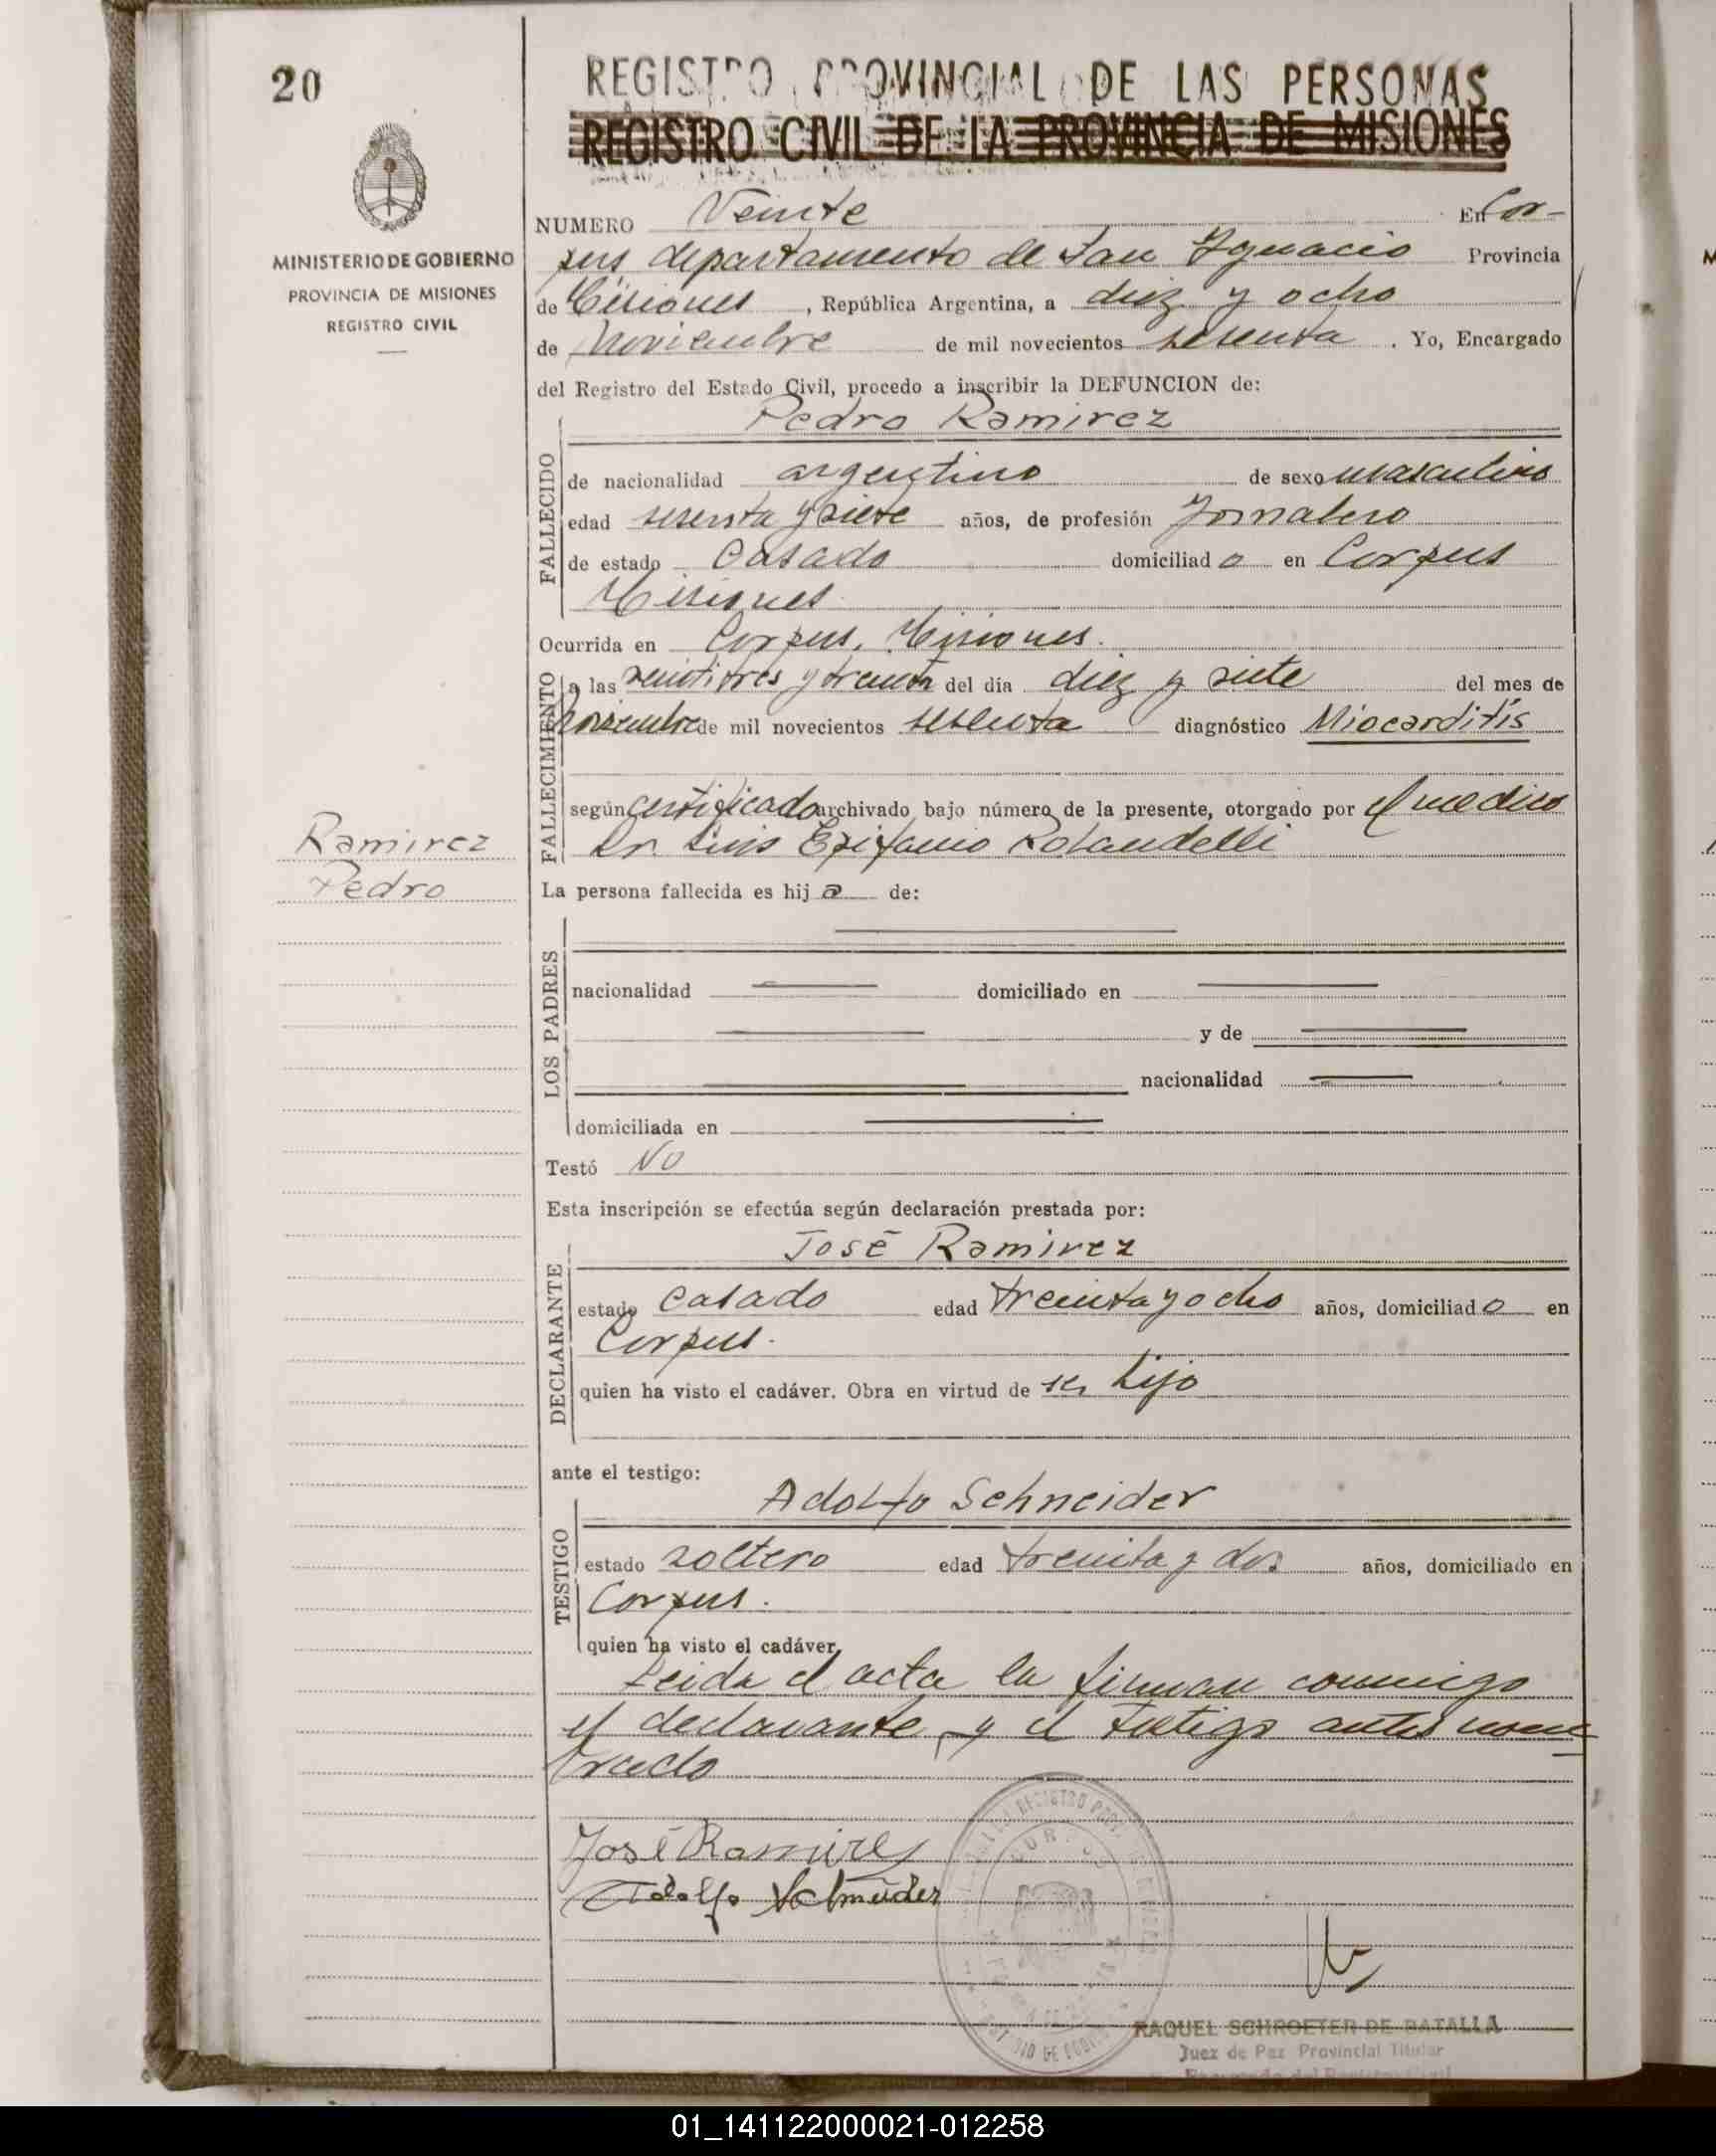 20
REGISTRO PROVINCIAL DE LAS PERSONAS
REGISTRO CIVIL DE LA PROVINCIA DE MISIONES
MINISTERIO DE GOBIERNO
PROVINCIA DE MISIONES
REGISTRO CIVIL
NUMERO Veinte En Cor-
pus departamento de San Ygnacio Provincia
de Misiones, República Argentina, a diez y ocho
de Noviembre de mil novecientos sesenta. Yo, Encargado
del Registro del Estado Civil, procedo a inscribir la DEFUNCION de:
Pedro Ramirez
FALLECIDO
de nacionalidad argentino de sexo masculino
edad sesenta y siete años, de profesión Jornalero
de estado Casado domiciliado en Corpus
Misiones
Ocurrida en Corpus, Misiones.
FALLECIMIENTO
a las veintitres y treinta del día diez y siete del mes de
Noviembre de mil novecientos sesenta diagnóstico Miocarditis
según certificado archivado bajo número de la presente, otorgado por el medico
Dr. Luis Epifanio Rolandelli
Ramirez
Pedro
La persona fallecida es hij a de:
LOS PADRES
nacionalidad domiciliado en
y de
nacionalidad
domiciliada en
Testó No
Esta inscripción se efectúa según declaración prestada por:
José Ramirez
DECLARANTE
estado Casado edad treinta y ocho años, domiciliado en
Corpus.
quien ha visto el cadáver. Obra en virtud de ser hijo
ante el testigo:
Adolfo Schneider
TESTIGO
estado soltero edad treinta y dos años, domiciliado en
Corpus.
quien ha visto el cadáver,
Leida el acta la firman conmigo
el declarante y el testigo antes nom-
brado
José Ramires
Adolfo Schneider
RAQUEL SCHROETER DE BATALLA
Juez de Paz Provincial Titular
Encargada del Registro Civil
01_141122000021-012258